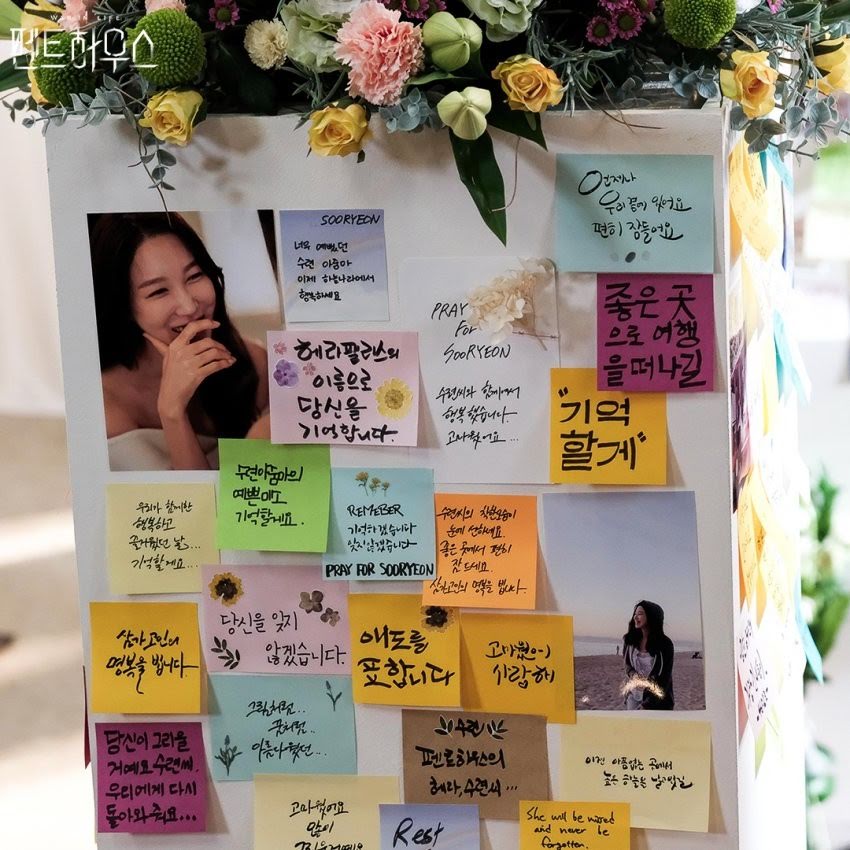 WAR IN LIFE
펜트하우스
SOORYEON
너무 예뻤던
수련 아줌마
이제 하늘나라에서
행복하세요
언제나
우리 곁에 있어요
편히 잠들어요
PRAY
For
SOORYEON
수련씨와 함께여서
행복했습니다.
고마웠어요...
좋은 곳
으로 여행
을 떠나길
헤라팰리스의
이름으로
당신을
기억합니다.
"기억
할게"
수련아줌마의
예쁜미소
기억할게요.
REMEBER
기억하겠습니다
잊지않겠습니다
PRAY FOR SOORYEON
수련씨의 착한모습이
눈에 선하네요.
좋은 곳에서 편히
잠드세요.
삼가고인의 명복을 빕니다.
우리와 함께한
행복하고
즐거웠던 날...
기억할게요...
당신을 잊지
않겠습니다.
삼가고인의
명복을 빕니다.
애도를
표합니다
고마웠어
사랑해
그림처럼..
꿈처럼..
아름다웠던...
당신이 그리울
거예요 수련씨.
우리에게 다시
돌아와줘요...
수련
펜트하우스의
헤라, 수련씨...
이젠 아픔없는 곳에서
고마웠어요
많이
Rest
She will be missed
and never be
forgotten.